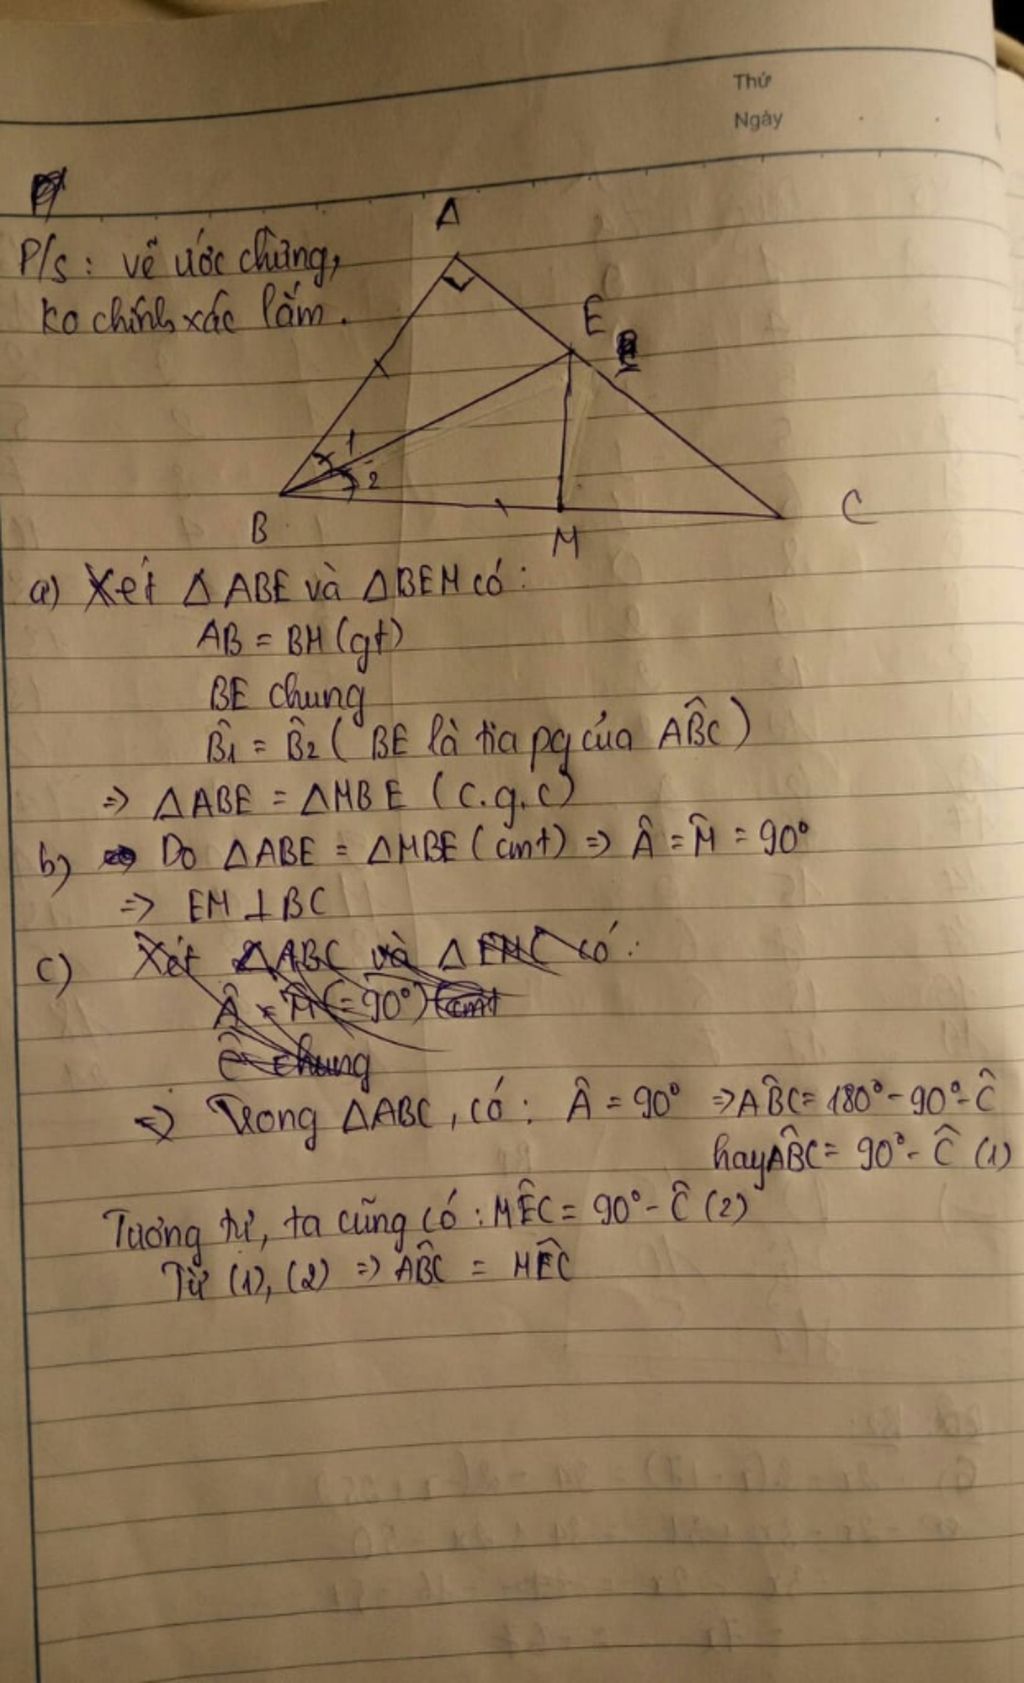 Thứ
Ngày
P/s: vẽ ước chừng,
ko chính xác lắm.
A
E
1
2
B
M
C
a) Xét ΔABE và ΔBEM có:
AB = BM (gt)
BE chung
B̂1 = B̂2 ( BE là tia pg của AB̂C )
=> ΔABE = ΔMBE (c.g.c)
b) Do ΔABE = ΔMBE (cmt) => Â = M̂ = 90°
=> EM ⊥ BC
c) Xét ΔABC và ΔEMC có:
Â = M̂ (= 90°) (cmt
Ĉ chung
=> Trong ΔABC, có: Â = 90° => AB̂C = 180° - 90° - Ĉ
hay AB̂C = 90° - Ĉ (1)
Tương tự, ta cũng có: MÊC = 90° - Ĉ (2)
Từ (1), (2) => AB̂C = MÊC